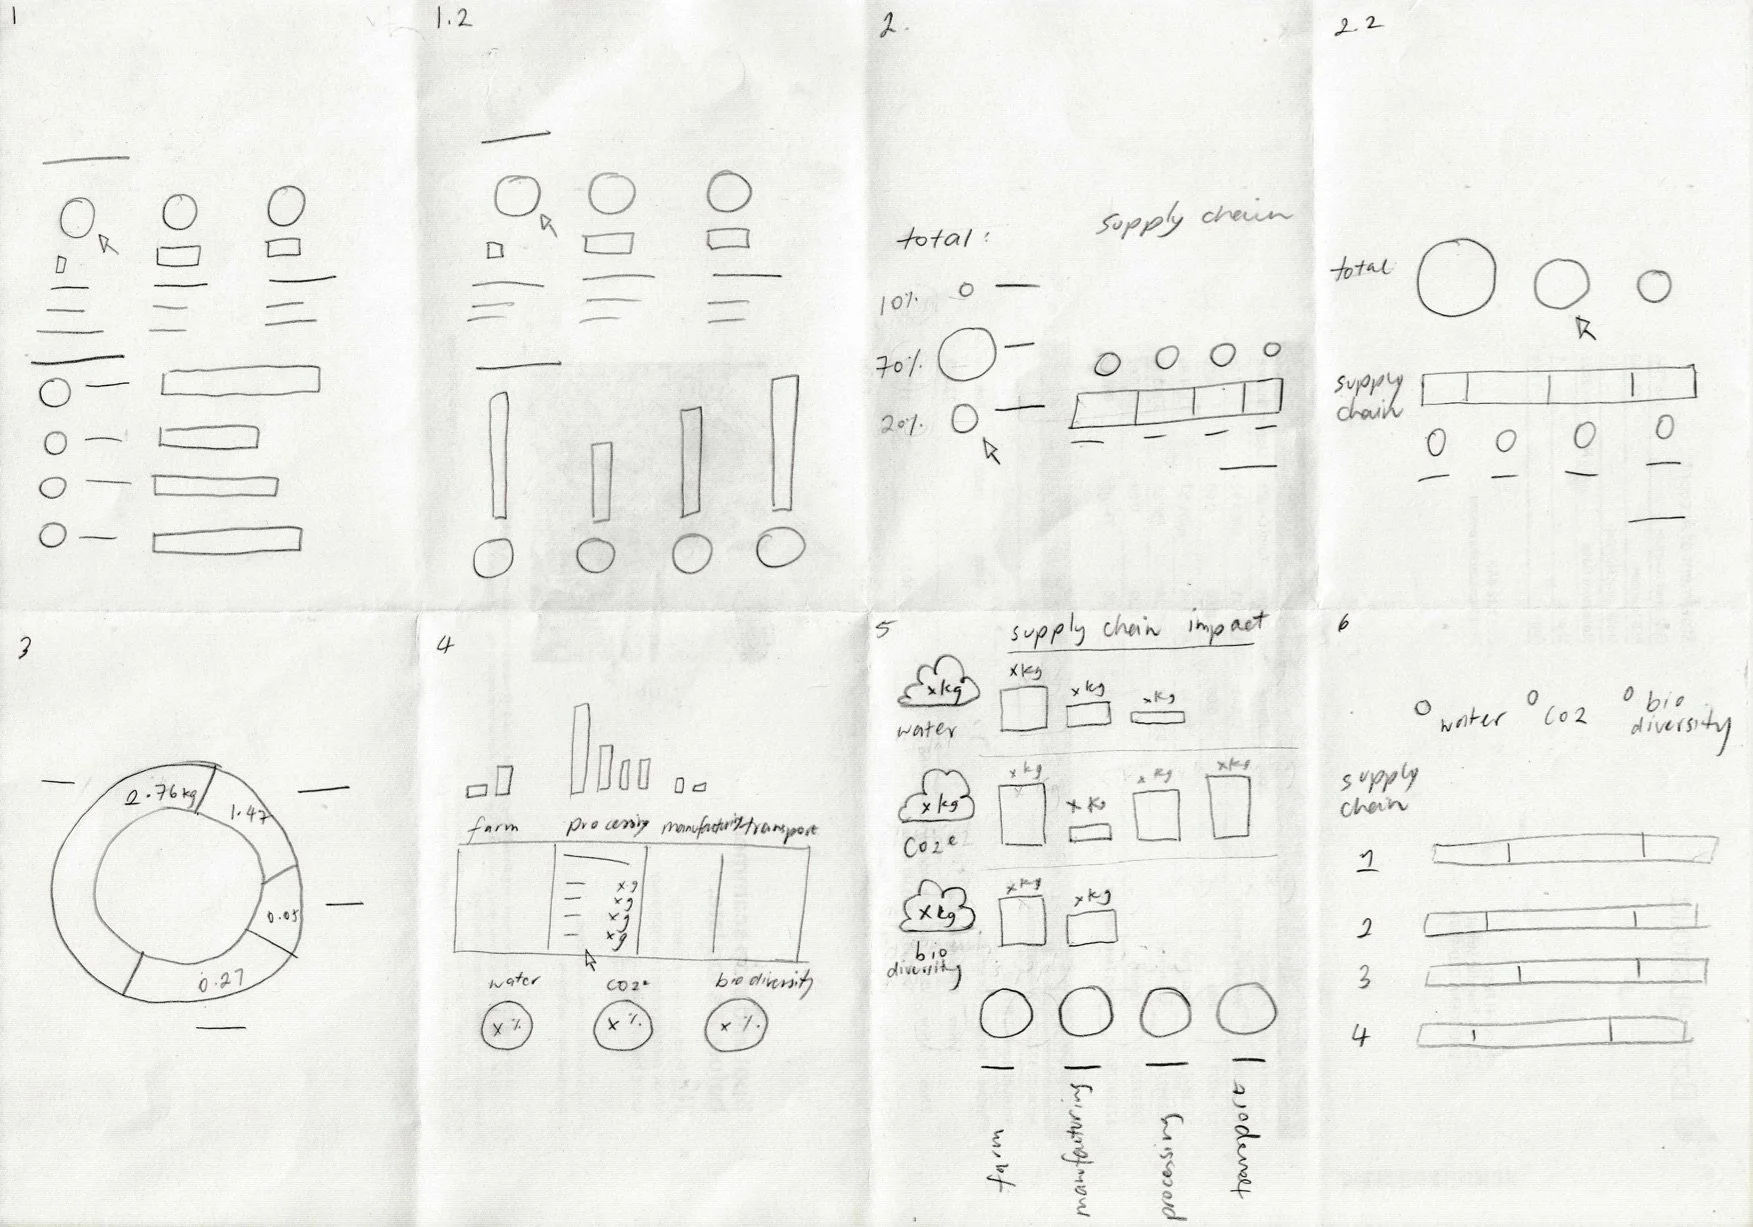 1
1.2
2.
supply chain
total:
10%
70%
20%
2.2
total
supply
chain
3
2.76kg
1.47
0.05
0.27
4
farm processing manufacturing transport
xg
xg
xg
xg
water CO2e biodiversity
x% x% x%
5
supply chain impact
xkg xkg xkg xkg
water
xkg xkg xkg xkg xkg
CO2e
xkg xkg xkg
bio
diversity
farm
manufacturing
processing
transport
6
water CO2 bio
diversity
supply
chain
1
2
3
4